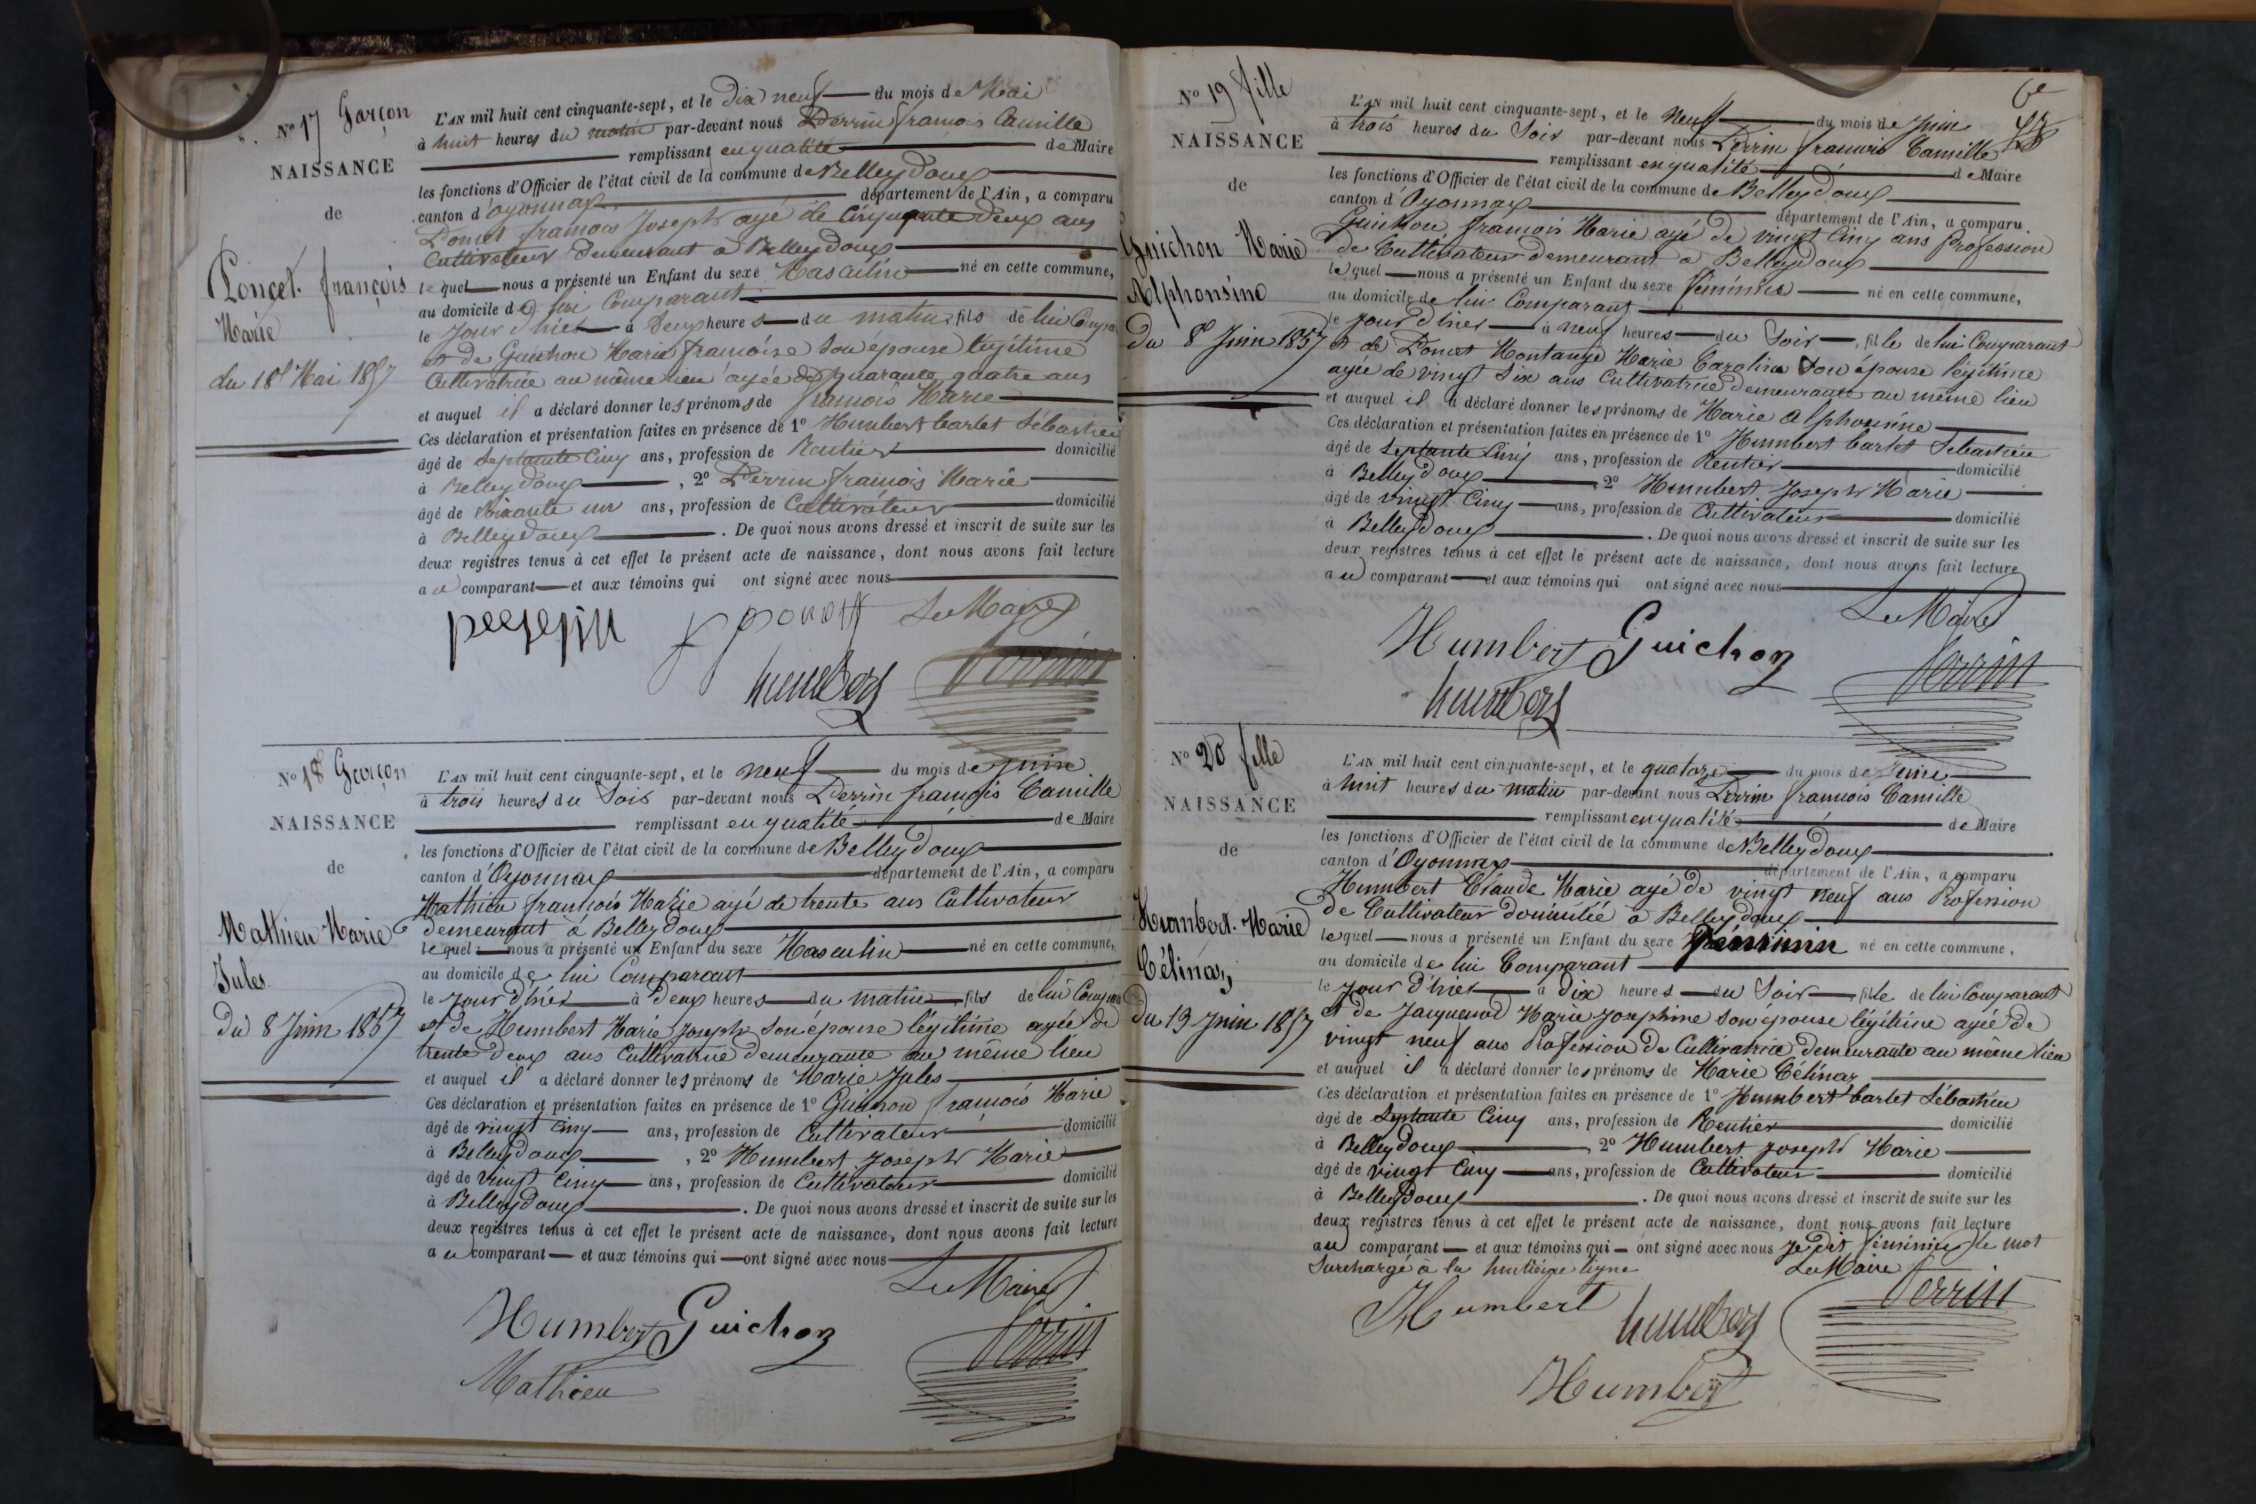 No 17 Garçon
NAISSANCE
de
Poncet François
Marie
du 18 Mai 1857
L'AN mil huit cent cinquante-sept, et le Dix neuf du mois de Mai
à huit heures du matin par-devant nous Perrin françois Camille
remplissant en qualité de Maire
les fonctions d'Officier de l'état civil de la commune de Belleydoux
canton d'oyonnax département de l'Ain, a comparu
Poncet françois Joseph agé de Cinquante deux ans
Cultivateur demeurant à Belleydoux
lequel nous a présenté un Enfant du sexe Masculin né en cette commune,
au domicile de lui Comparant
le Jour d'hier à Deux heures du matin, fils de lui Compa
et de Guichon Marie françoise son épouse légitime
Cultivatrice au même lieu agée de quarante quatre ans
et auquel il a déclaré donner les prénoms de françois Marie
Ces déclaration et présentation faites en présence de 1º Humbert barlet Sébastien
âgé de Septante Cinq ans, profession de Rentier domicilié
à Belleydoux, 2º Perrin françois Marie
âgé de soixante un ans, profession de Cultivateur domicilié
à Belleydoux. De quoi nous avons dressé et inscrit de suite sur les
deux registres tenus à cet effet le présent acte de naissance, dont nous avons fait lecture
au comparant et aux témoins qui ont signé avec nous
Le Maire
humbert
Perrin
No 18 Garçon
NAISSANCE
de
Mathieu Marie
Jules
Du 8 Juin 1857
L'AN mil huit cent cinquante-sept, et le neuf du mois de Juin
à trois heures du Soir par-devant nous Perrin françois Camille
remplissant en qualité de Maire
les fonctions d'Officier de l'état civil de la commune de Belleydoux
canton d'Oyonnax département de l'Ain, a comparu
Mathieu françois Marie agé de trente ans Cultivateur
demeurant à Belleydoux
lequel nous a présenté un Enfant du sexe Masculin né en cette commune,
au domicile de lui Comparant
le Jour d'hier à Deux heures du matin, fils de lui Compa
et de Humbert Marie Joseph son épouse légitime agée de
trente deux ans Cultivatrice demeurante au même lieu
et auquel il a déclaré donner les prénoms de Marie Jules
Ces déclaration et présentation faites en présence de 1º Guichon françois Marie
âgé de vingt cinq ans, profession de Cultivateur domicilié
à Belleydoux, 2º Humbert Joseph Marie
âgé de vingt Cinq ans, profession de Cultivateur domicilié
à Belleydoux. De quoi nous avons dressé et inscrit de suite sur les
deux registres tenus à cet effet le présent acte de naissance, dont nous avons fait lecture
au comparant et aux témoins qui ont signé avec nous
Le Maire
Humbert Guichon
Perrin
Mathieu
No 19 fille
NAISSANCE
de
Guichon Marie
Alphonsine
Du 8 Juin 1857
L'AN mil huit cent cinquante-sept, et le neuf du mois de Juin
à trois heures du Soir par-devant nous Perrin françois Camille
remplissant en qualité de Maire
les fonctions d'Officier de l'état civil de la commune de Belleydoux
canton d'Oyonnax département de l'Ain, a comparu
Guichon françois Marie agé de vingt Cinq ans Profession
de Cultivateur demeurant à Belleydoux
lequel nous a présenté un Enfant du sexe féminin né en cette commune,
au domicile de lui Comparant
le jour d'hier à neuf heures du Soir, fille de lui Comparant
et de Poncet Montange Marie Caroline son épouse légitime
agée de vingt Six ans Cultivatrice demeurante au même lieu
et auquel il a déclaré donner les prénoms de Marie alphonsine
Ces déclaration et présentation faites en présence de 1º Humbert barlet Sébastien
âgé de Septante Cinq ans, profession de Rentier domicilié
à Belleydoux 2º Humbert Joseph Marie
âgé de vingt Cinq ans, profession de Cultivateur domicilié
à Belleydoux. De quoi nous avons dressé et inscrit de suite sur les
deux registres tenus à cet effet le présent acte de naissance, dont nous avons fait lecture
au comparant et aux témoins qui ont signé avec nous
Le Maire
Humbert Guichon
Perrin
humbert
No 20 fille
NAISSANCE
de
Humbert Marie
Célina
Du 13 Juin 1857
L'AN mil huit cent cinquante-sept, et le quatorze du mois de Juin
à huit heures du matin par-devant nous Perrin françois Camille
remplissant en qualité de Maire
les fonctions d'Officier de l'état civil de la commune de Belleydoux
canton d'Oyonnax département de l'Ain, a comparu
Humbert Claude Marie agé de vingt neuf ans Profession
de Cultivateur domicilié à Belleydoux
lequel nous a présenté un Enfant du sexe féminin né en cette commune,
au domicile de lui Comparant
le jour d'hier à Dix heures du Soir, fille de lui Comparant
et de Jacquenod Marie Josephine son épouse légitime agée de
vingt neuf ans Profession de Cultivatrice demeurante au même lieu
et auquel il a déclaré donner les prénoms de Marie Célina
Ces déclaration et présentation faites en présence de 1º Humbert barlet Sébastien
âgé de Septante Cinq ans, profession de Rentier domicilié
à Belleydoux, 2º Humbert Joseph Marie
âgé de vingt Cinq ans, profession de Cultivateur domicilié
à Belleydoux. De quoi nous avons dressé et inscrit de suite sur les
deux registres tenus à cet effet le présent acte de naissance, dont nous avons fait lecture
au comparant et aux témoins qui ont signé avec nous je dit féminin le mot
Surchargé à la huitième ligne
Le Maire
Humbert humbert Perrin
Humbert